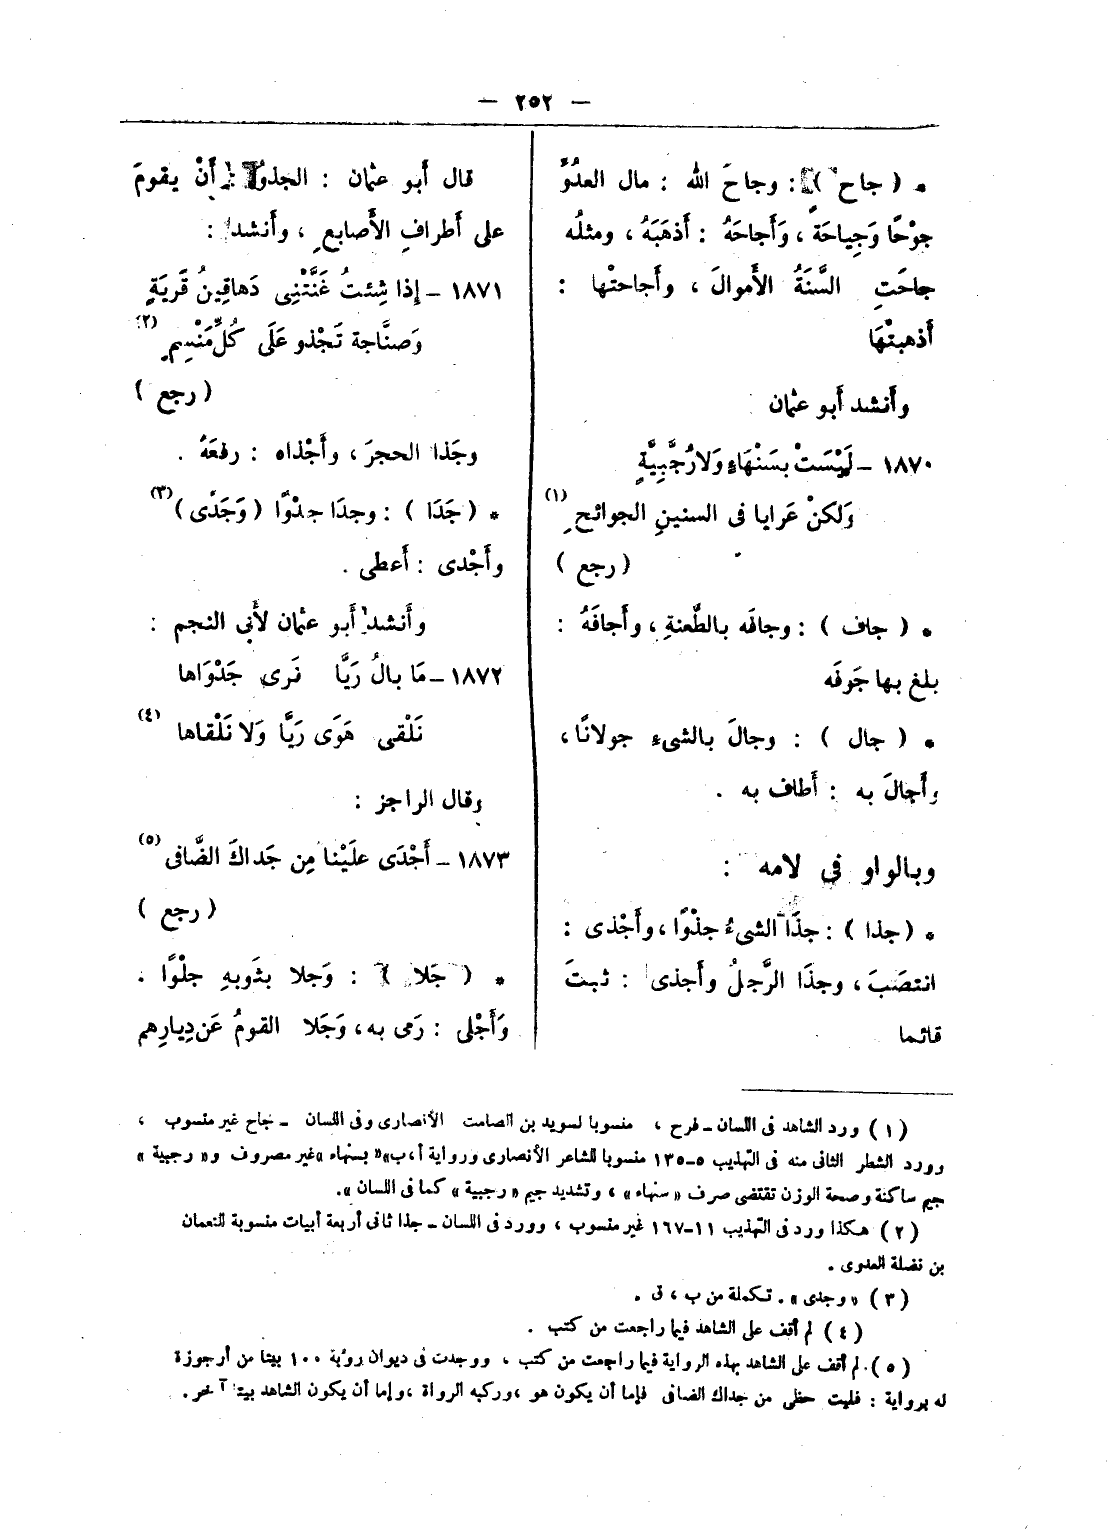 — ٢٥٢ —
* ( جاح ) : وجاحَ الله : مال العدُوِّ
جوْحًا وَجِياحَةً ، وَأَجاحَهُ : أَذهَبَهُ ، ومثلُه
جاحَتِ السَّنَةُ الأَموالَ ، وأَجاحتْها :
أَذهبتْهَا
وأَنشد أَبو عثمان
١٨٧٠ – لَيْسَتْ بسَنْهَاءٍ وَلا رُجَّبِيَّةٍ
وَلكنْ عَرايا فى السنينِ الجوائحِ (١)
( رجع )
* ( جاف ) : وجافَه بالطَّعنةِ ، وأَجافَهُ :
بلغ بها جَوفَه
* ( جال ) : وجالَ بالشىءِ جولانًا ،
وأَجالَ به : أَطاف به .
وبالواو فى لامه :
* ( جذا ) : جذَا الشىءُ جذْوًا ، وأَجْذى :
انتصَبَ ، وجذَا الرَّجلُ وأَجذى : ثبتَ
قائما
قال أَبو عثمان : الجذوُ : أَنْ يقومَ
على أَطرافِ الأَصابعِ ، وأَنشد :
١٨٧١ – إِذا شِئتُ غَنَّتْنِى دَهاقِينُ قَريَةٍ
وَصنَّاجة تَجْذو عَلَى كُلِّ مَنْسِمِ (٢)
( رجع )
وجَذا الحجرَ ، وأَجْذاه : رفعَهُ .
* ( جَدَا ) : وجدَا جدْوًا ( وَجَدْى ) (٣)
وأَجْدى : أَعطى .
وأَنشد أَبو عثمان لأَبى النجم :
١٨٧٢ – مَا بالُ رَيَّا نَرى جَدْوَاها
نَلْقى هَوَى رَيَّا وَلا نَلْقاها (٤)
وقال الراجز :
١٨٧٣ – أَجْدَى علَيْنا مِن جَداكَ الضَّافى (٥)
( رجع )
* ( جَلا ) : وَجلا بثَوبهِ جلْوًا .
وَأَجْلى : رَمى به ، وَجَلا القومُ عَن دِيارِهم
( ١ ) ورد الشاهد فى اللسان – فرح ، منسوبا لسويد بن الصامت الأنصارى وفى اللسان – جاح غير منسوب ،
وورد الشطر الثانى منه فى التهذيب ٥–١٣٥ منسوبا للشاعر الأنصارى ورواية أ ، ب « بسنهاء » غير مصروف و « رجبية »
جيم ساكنة وصحة الوزن تقتضى صرف « سنهاء » ، وتشديد جيم « رجبية » كما فى اللسان ».
( ٢ ) هكذا ورد فى التهذيب ١١–١٦٧ غير منسوب ، وورد فى اللسان – جذا ثانى أربعة أبيات منسوبة للنعمان
بن نضلة العدوى .
( ٣ ) « وجدى » . تكملة من ب ، ق .
( ٤ ) لم أقف على الشاهد فيما راجعت من كتب .
( ٥ ) . لم أقف على الشاهد بهذه الرواية فيما راجعت من كتب ، ووجدت فى ديوان رؤبة ١٠٠ بيتا من أرجوزة
له برواية : فليت حظى من جداك الضافى فإما أن يكون هو ، وركبه الرواة ، وإما أن يكون الشاهد بيتا آخر .